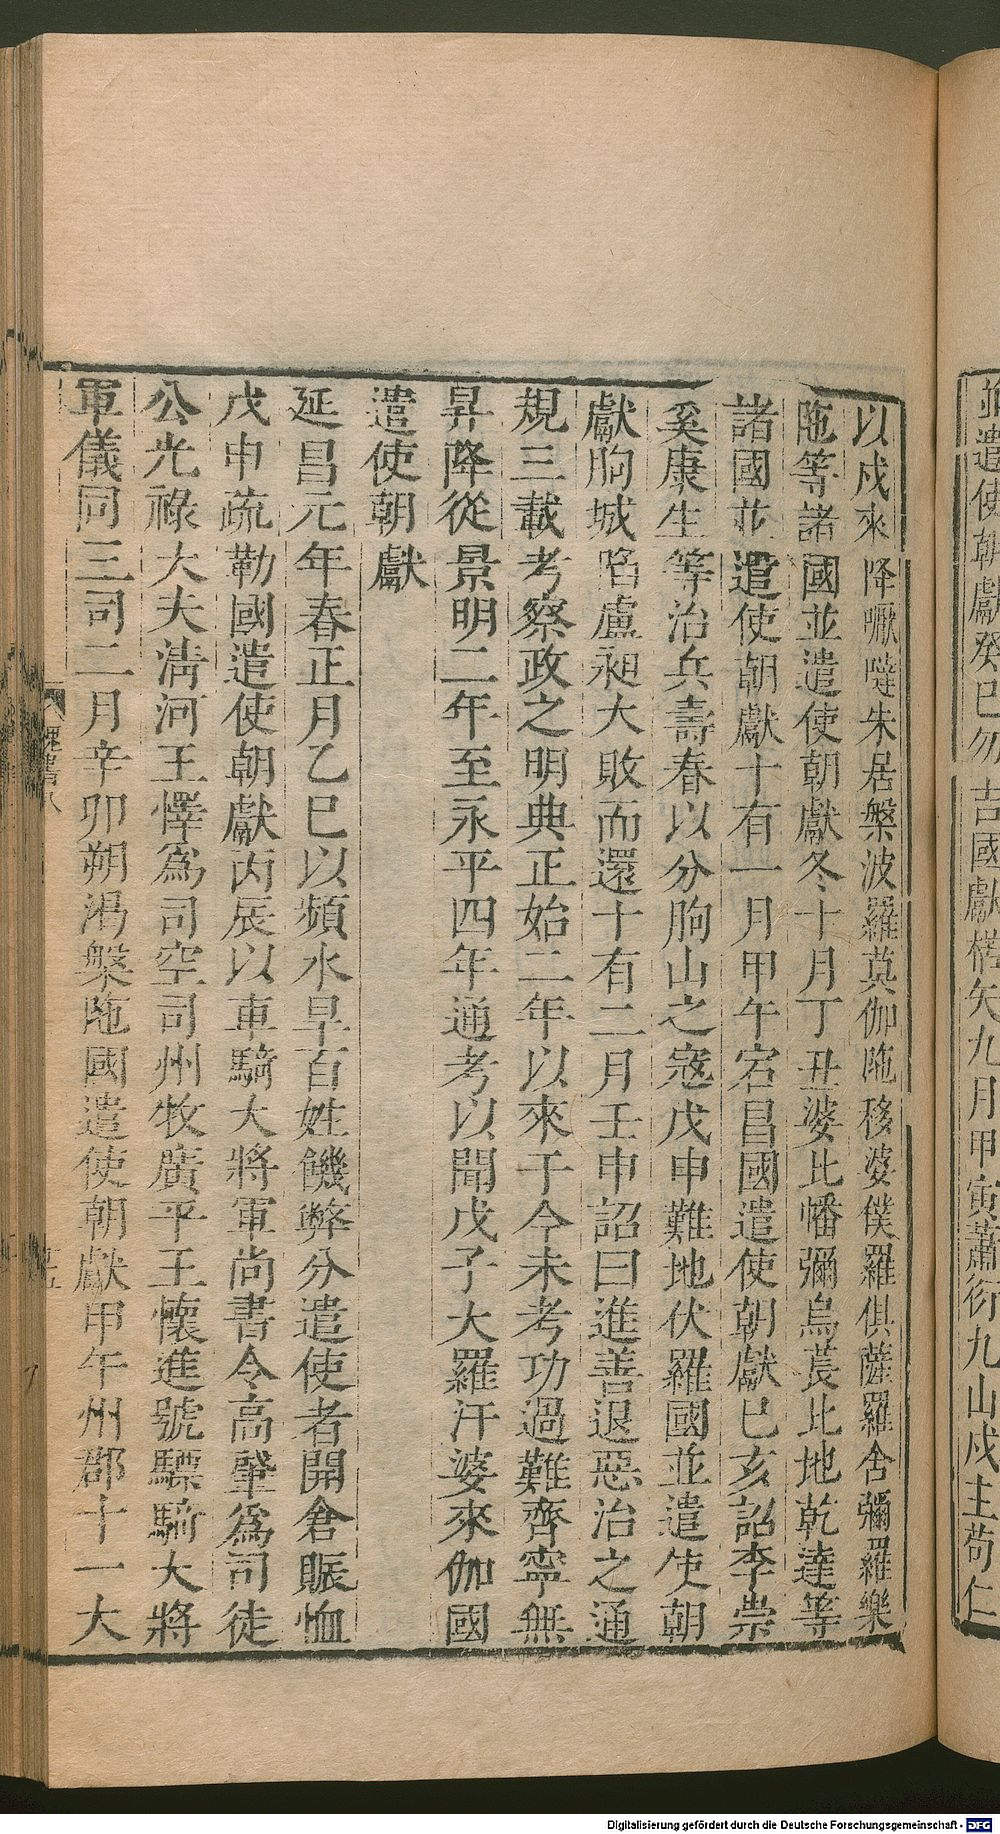 並遣使朝獻癸巳勿吉國獻楛矢九月甲寅蕭衍九山戍主苟仁
以戍來降嚈噠朱居槃波羅莫伽陁移婆僕羅俱薩羅舍彌羅樂
陁等諸國並遣使朝獻冬十月丁丑婆比幡彌烏萇比地乾達等
諸國並遣使朝獻十有一月甲午宕昌國遣使朝獻己亥詔李崇
奚康生等治兵壽春以分朐山之寇戊申難地伏羅國並遣使朝
獻朐城陷盧昶大敗而還十有二月壬申詔曰進善退惡治之通
規三載考察政之明典正始二年以來于今未考功過難齊寧無
昇降從景明二年至永平四年通考以聞戊子大羅汗婆來伽國
遣使朝獻
延昌元年春正月乙巳以頻水旱百姓饑弊分遣使者開倉賑恤
戊申疏勒國遣使朝獻丙辰以車騎大將軍尚書令高肇爲司徒
公光祿大夫淸河王懌爲司空司州牧廣平王懷進號驃騎大將
軍儀同三司二月辛卯朔渴槃陁國遣使朝獻甲午州郡十一大
魏書八
Digitalisierung gefördert durch die Deutsche Forschungsgemeinschaft - DFG